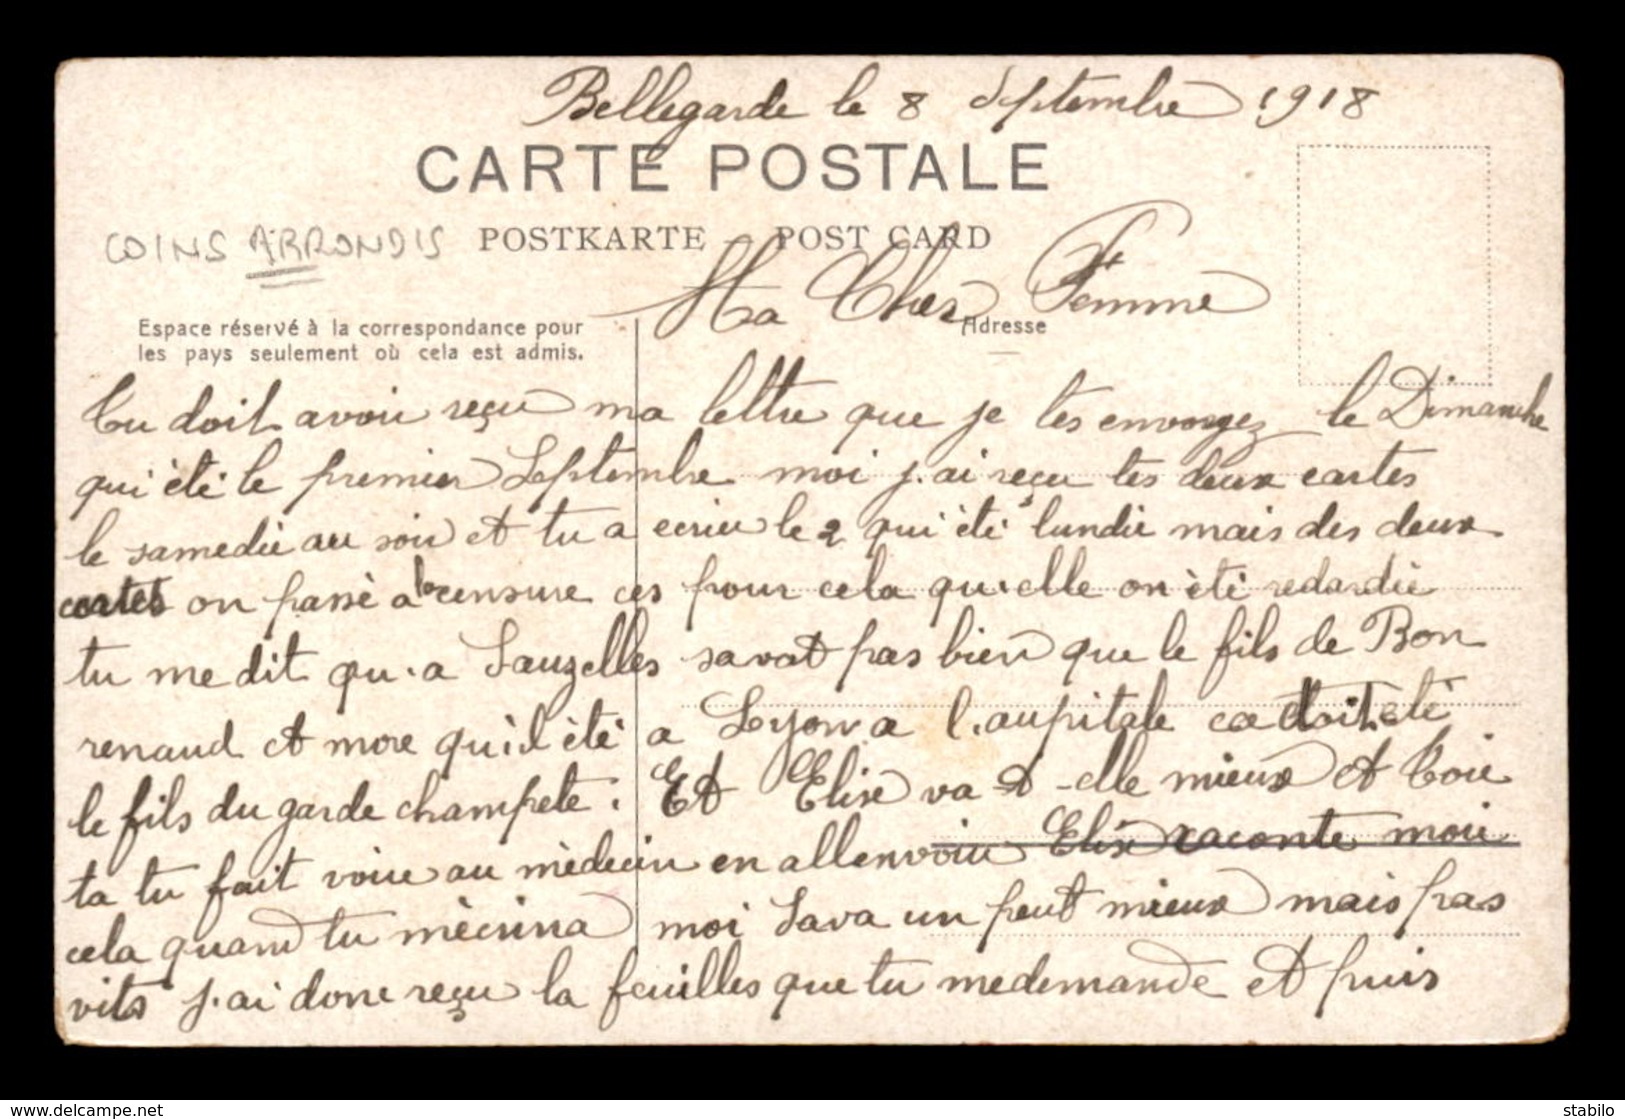 Bellegarde le 8 Septembre 1918
CARTE POSTALE
COINS ARRONDIS
POSTKARTE — POST CARD
Ma Cher Femme
Adresse
Espace réservé à la correspondance pour
les pays seulement où cela est admis.
Tu doit avoir reçu ma lettre que je tes envoyez le Dimanche
qui été le premier Septembre moi j.ai reçu tes deux cartes
le samedie au soir et tu a ecrieu le 2 qui été lundie mais des deux
cartes on passé a la censure ces pour cela qu.elle on été redardée
tu me dit qu.a Sauzelles savat pas bien que le fils de Bon
renaud et more qu'il été a Lyon a l.aupitale ce doit été
le fils du garde champete. Et Elise va t-elle mieux et toie
ta tu fait voire au médecin en allenvoiu Elise raconte moie
cela quand tu mécrira moi Sava un peut mieux mais pas
vits j.ai donc reçu la feuilles que tu me demande et puis
https://www.delcampe.net
stabilo